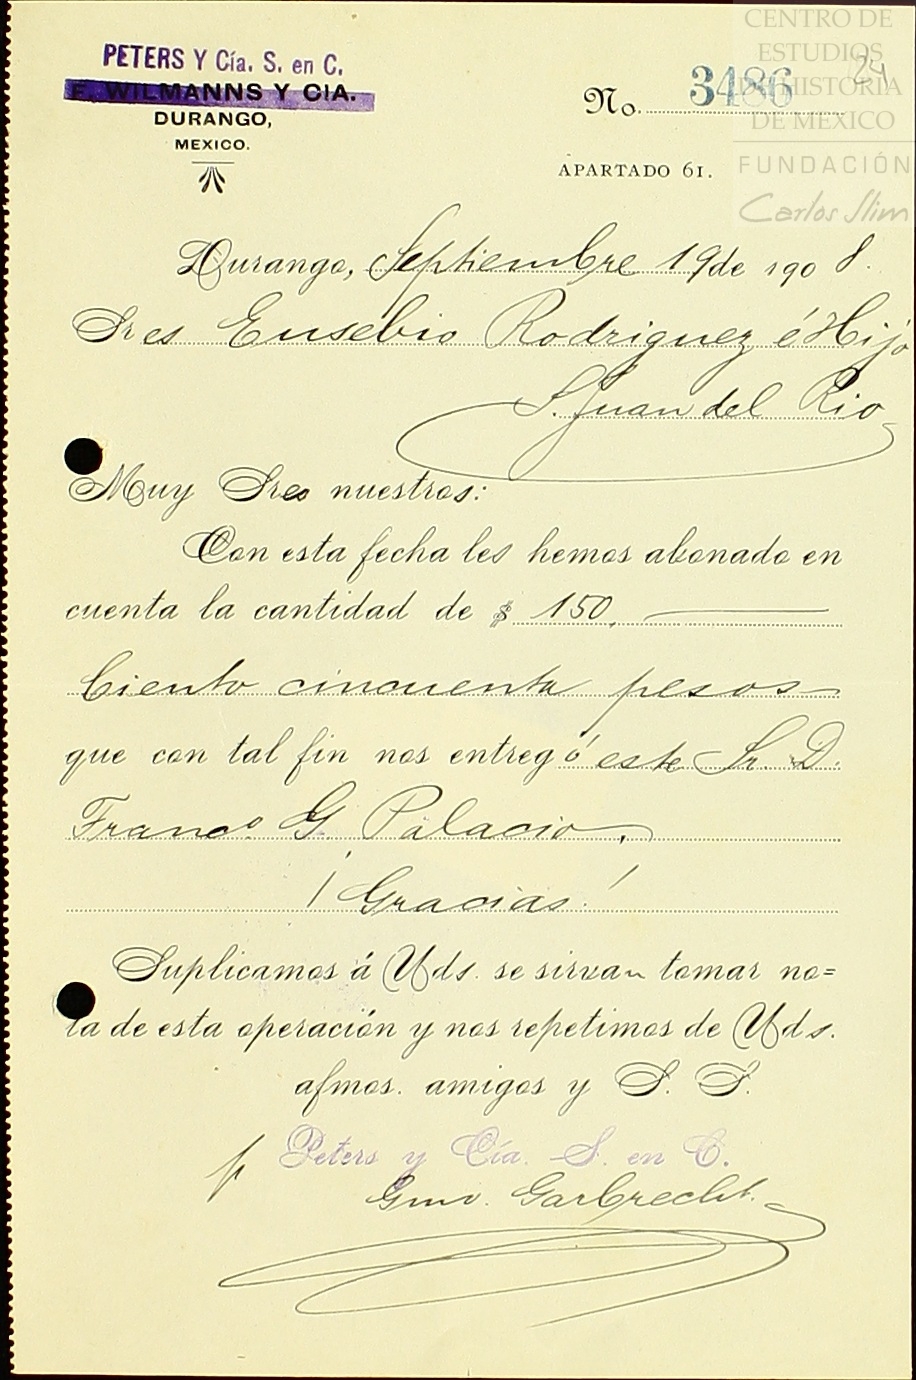 CENTRO DE
ESTUDIOS
DE HISTORIA
DE MEXICO
FUNDACIÓN
Carlos Slim
PETERS Y Cía. S. en C.
F. WILMANNS Y CIA.
DURANGO,
MEXICO.
No. 3486
24
APARTADO 61.
Durango, Septiembre 19 de 1908.
Sres Eusebio Rodriguez é Hijo
S. Juan del Rio
Muy Sres nuestros:
Con esta fecha les hemos abonado en
cuenta la cantidad de $ 150.
Ciento cincuenta pesos
que con tal fin nos entregó este Sr. D.
Franco G. Palacio.
¡Gracias!
Suplicamos á Uds. se sirvan tomar no=
ta de esta operación y nos repetimos de Uds.
afmos. amigos y S. S.
p Peters y Cía. S. en C.
Gmo. Garbrecht.